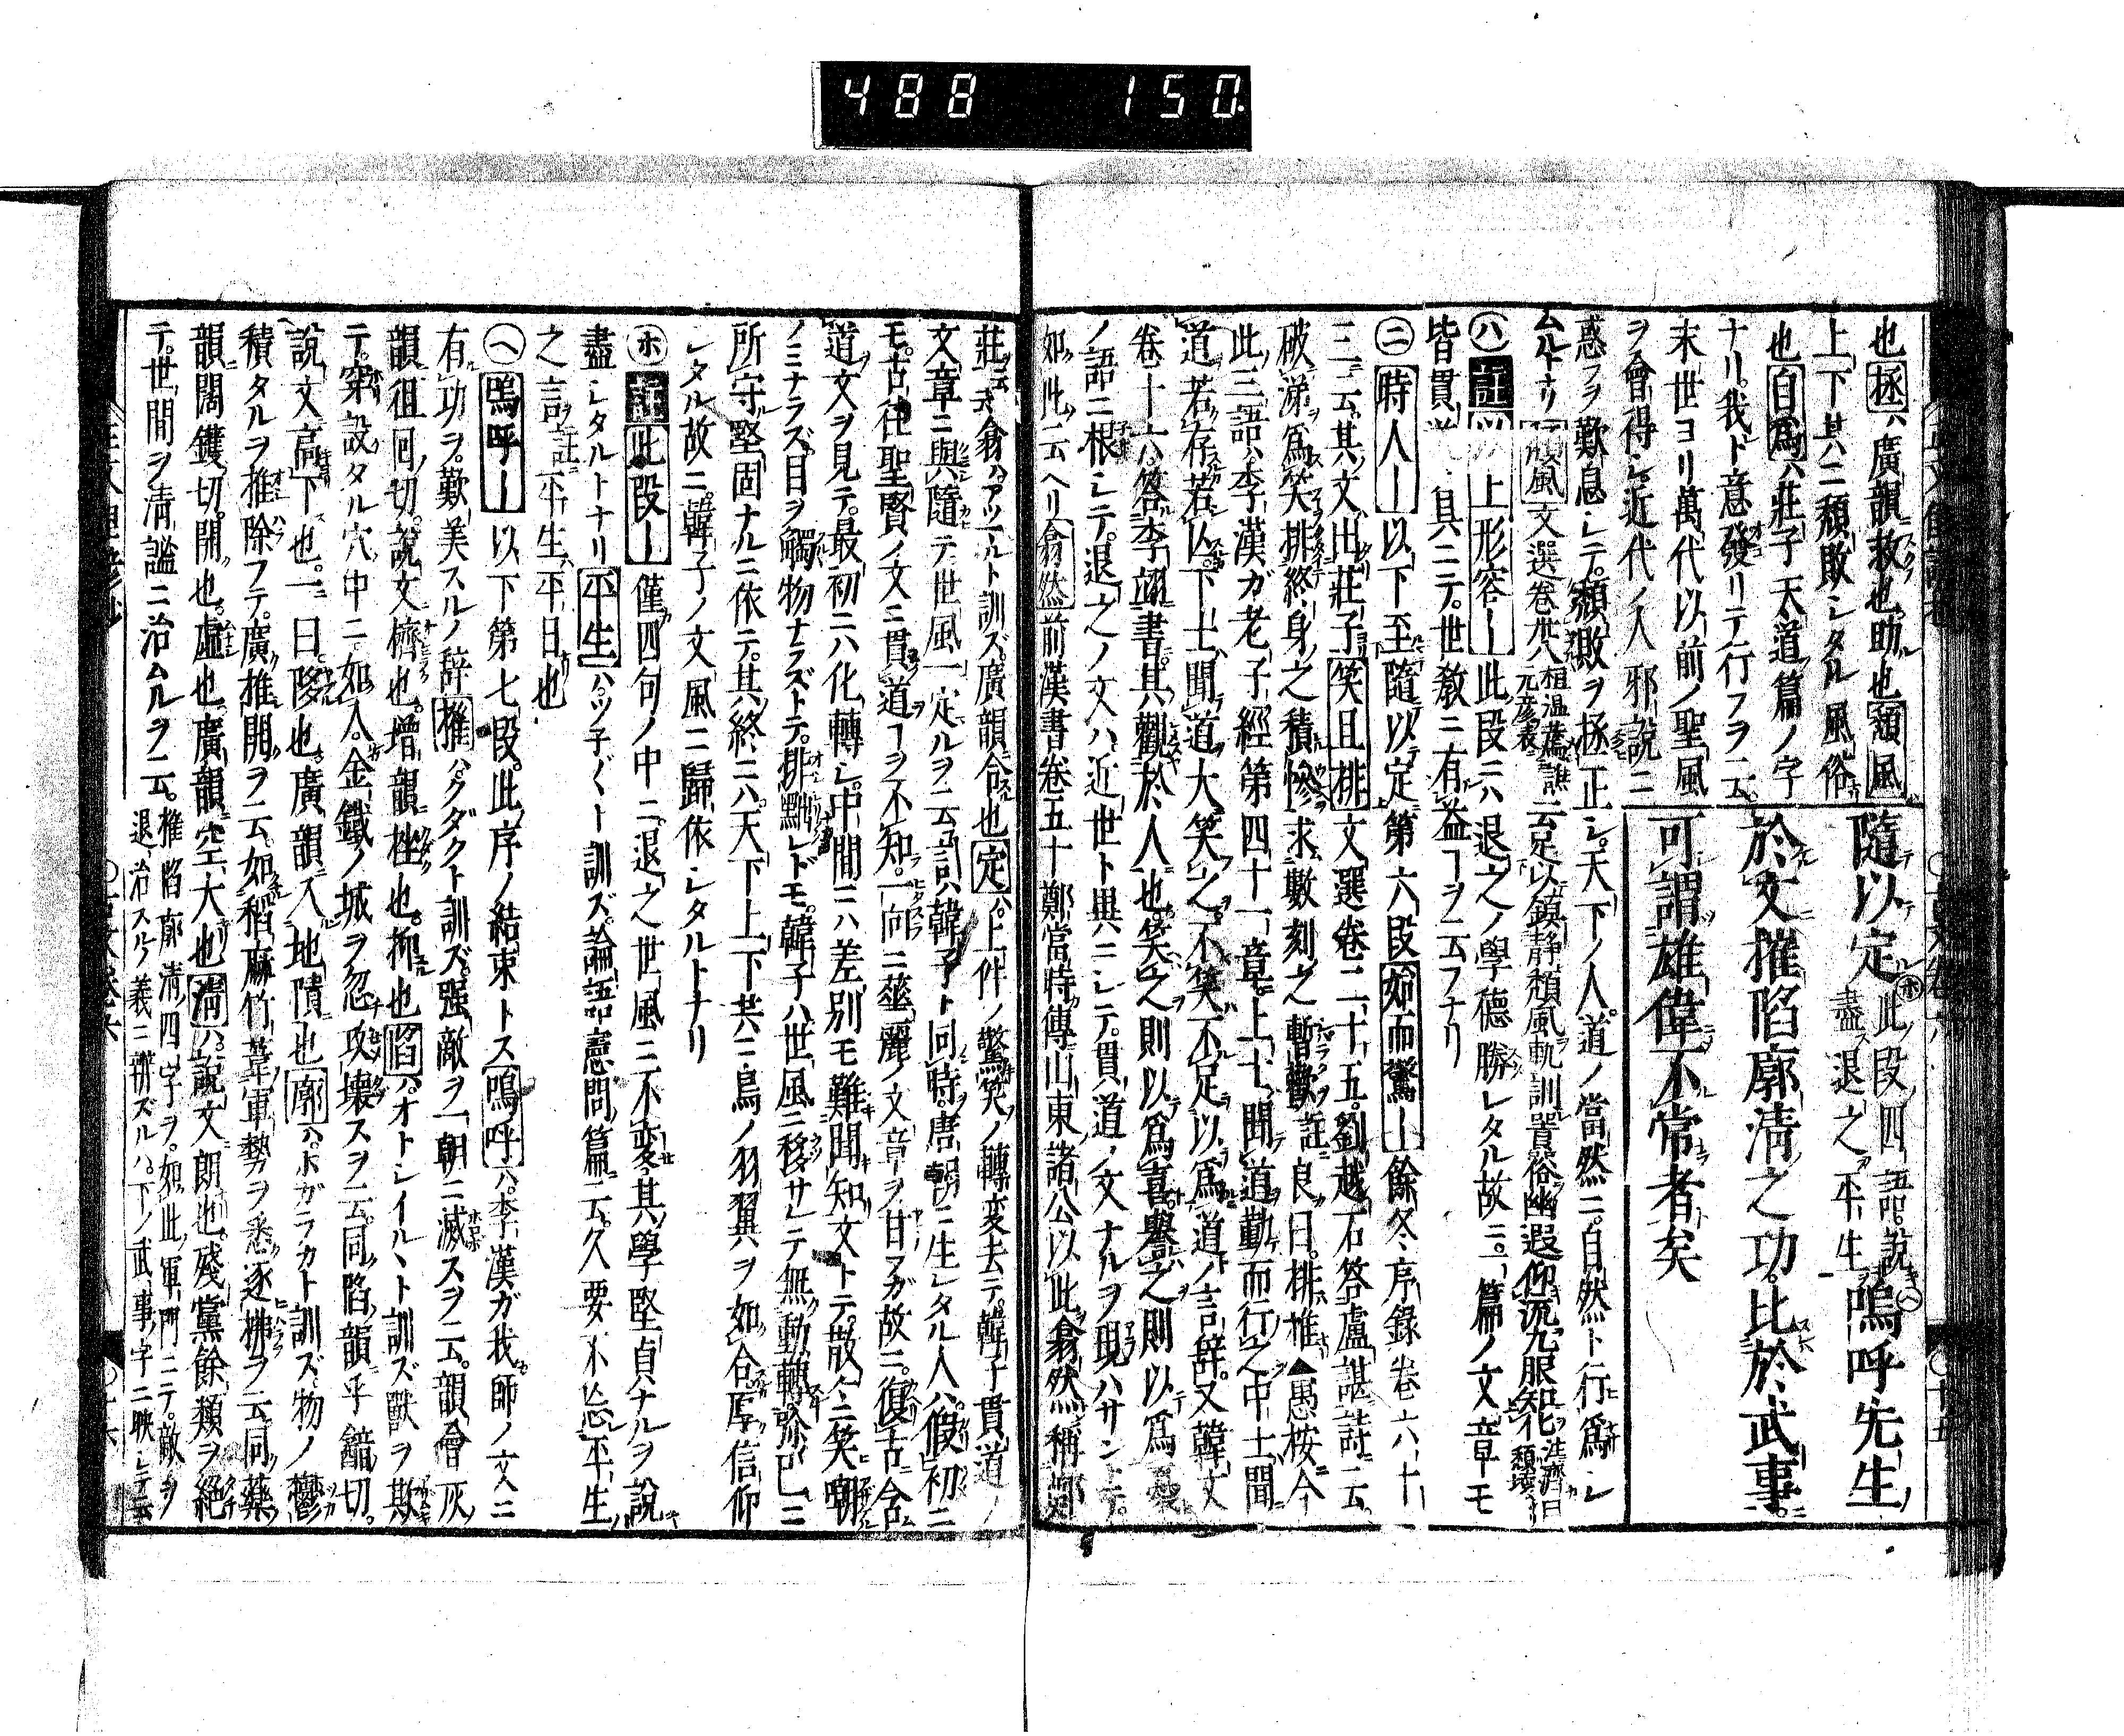 488 150
也拯ハ廣韻救也助也頽風
上下共ニ頽敗シタル風俗
也自爲ハ莊子天道篇ノ字
ナリ我ト意發リテ行フヲ云
末世ヨリ萬代以前ノ聖風
ヲ會得シ近代ノ人邪說ニ
隨以定ホ此段四語說盡退之平生ヘ嗚呼先生
於文摧陷廓淸之功比於武事
可謂雄偉不常者矣
惑フヲ歎息シテ頽敗ヲ拯正シ天下ノ人道ノ當然ニ自然ト行爲シ
ムルトナリ頽風文選卷卅八桓温薦譙元彥表云足以鎭靜頽風軌訓囂俗幽遐仰流九服知化注濟曰頽壞
ハ註以上形容ー此段ニハ退之ノ學德勝レタル故ニ一篇ノ文章モ
皆貫道ノ具ニテ世敎ニ有益ヿヲ云フナリ
ニ時人ー以下至隨以定第六段始而驚ー餘冬序錄卷六十
三云其文出莊子笑且排文選卷二十五劉越石答盧諶詩云
破涕爲笑排終身之積慘求數刻之暫歡註良曰排推▲愚桉今
此三語ハ李漢ガ老子經第四十一章上士聞道勤而行之中士聞
道若存若亡下士聞道大笑之不笑不足以爲道ノ言辭又韓文
卷十六答李翊書其觀於人也笑之則以爲喜譽之則以爲憂
ノ語ニ根シテ退之ノ文ハ近世ト與ニシテ貫道ノ文ナルヲ現ハサンニテ
如此云ヘリ翕然前漢書卷五十鄭當時傳山東諸公以此翕然稱鄭
莊云云翕ハアツマルト訓ズ廣韻合也定ハ上件ノ驚笑ノ轉変去テ韓子貫道ノ
文章ニ與隨テ世風一定ルヲ云言ハ韓子ト同時唐朝ニ生レタル人ハ假初ニ
モ古往聖賢ノ文ニ貫道ヿヲ不知一向ニ華麗ノ文章ヲ甘フガ故ニ復古含
道文ヲ見テ最初ニハ化轉シ中間ニハ差別モ難聞知文トテ散々ニ笑嘲
ノミナラズ目ヲ觸物ナラズトテ排黜レドモ韓子ハ世風ニ移サレテ無動轉終已ニ
所守堅固ナルニ依テ其終ニハ天下上下共ニ鳥ノ羽翼ヲ如合厚信仰
レタル故ニ韓子ノ文風ニ歸依シタルトナリ
ホ註此段ー僅四句ノ中ニ退之世風ニ不変其學堅貞ナルヲ說
盡シタルトナリ平生ハツ子〴〵ト訓ズ論語憲問篇云久要不忘平生
之言註平生平日也
ヘ嗚呼ー以下第七段此序ノ結束トス嗚呼ハ李漢ガ我師ノ文ニ
有功ヲ歎美スルノ辞摧ハクダクト訓ズ强敵ヲ一朝ニ滅スヲ云韻會灰
韻徂回切說文擠也增韻挫也抑也陷ハオトシイルヽト訓ズ獸ヲ欺
テ穿設タル穴中ニ如入金鐵ノ城ヲ忽攻壞スヲ云同陷韻乎韽切
說文高下也一曰陊也廣韻入地隤也廓ハホガラカト訓ズ物ノ鬱
積タルヲ推除フテ廣推開ヲ云如稻麻竹葦軍勢ヲ悉逐拂ヲ云同藥
韻闊鑊切開也虛也廣韻空大也淸ハ說文朗也殘黨餘類ヲ絕
テ世間ヲ淸謐ニ治ムルヲ云摧陷廓淸四字ヲ如此軍門ニテ敵ヲ退治スル義ニ辨ズルハ下ノ武事字ニ映シテ云